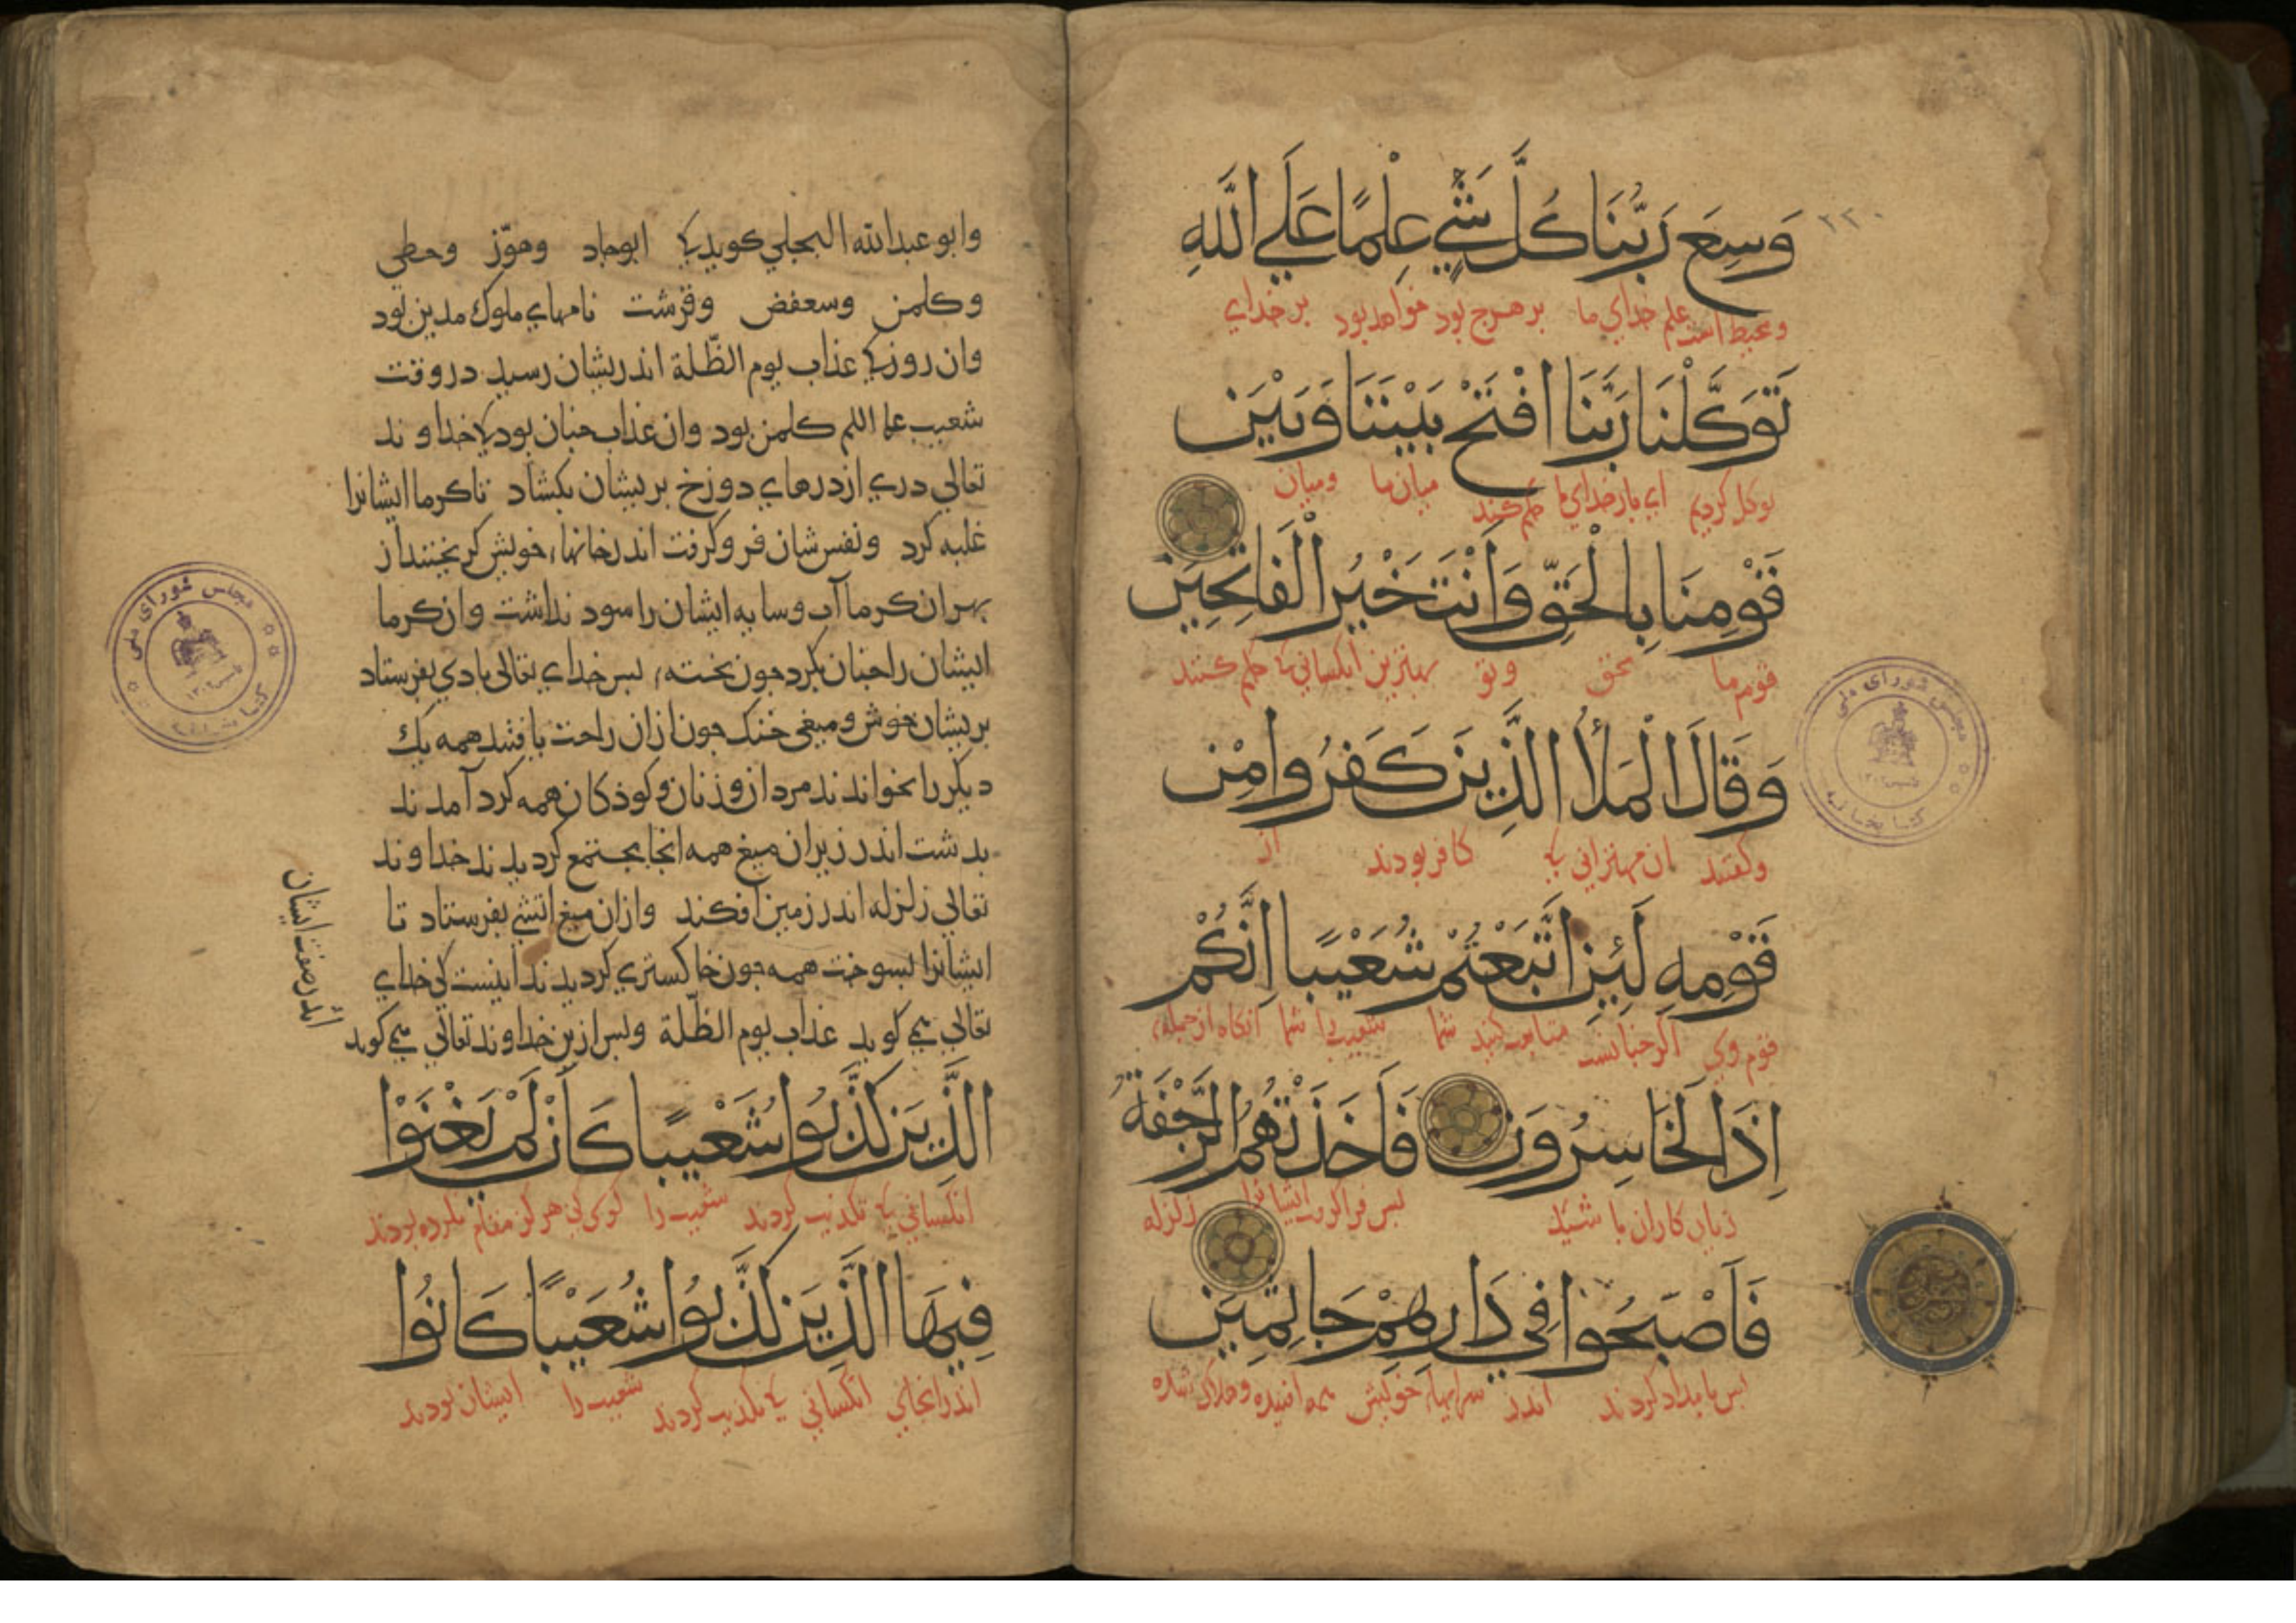 ۲۲۰
وَسِعَ رَبُّنَا كُلَّ شَيْءٍ عِلْمًا عَلَي اللَّهِ
و محیط است علم خدای ما بر هرچ بود و خواهد بود بر خدای
تَوَكَّلْنَا رَبَّنَا افْتَحْ بَيْنَنَا وَبَيْنَ
توکل کردیم ای بار خدای ما حکم کن میان ما و میان
قَوْمِنَا بِالْحَقِّ وَأَنْتَ خَيْرُ الْفَاتِحِينَ
قوم ما بحق و تو بهترین آنکسانی کی حکم کنند
وَقَالَ الْمَلَأُ الَّذِينَ كَفَرُوا مِنْ
و گفتند ان مهترانی کی کافر بودند از
قَوْمِهِ لَئِنِ اتَّبَعْتُمْ شُعَيْبًا اِنَّكُمْ
قوم وی اگر چنانست متابعت کنید شما شعیب را شما آنگاه از جمله
اِذًا لَخَاسِرُونَ فَاَخَذَتْهُمُ الرَّجْفَةُ
زیان کاران باشید پس فرا گرفت ایشانرا زلزله
فَاَصْبَحُوا فِي دَارِهِمْ جَاثِمِينَ
پس بامداد کردند اندر سرایهاء خویش همه افتیده و هلاک شده
وابو عبدالله البجلي کوید کی ابوجاد وهوّز وحطی
وکلمن وسعفض وقرشت نامهاي ملوك مدین بود
وان روز کی عذاب یوم الظّلة اندریشان رسید در وقت
شعیب علیه السلم کلمن بود وان عذاب جنان بود کی خداوند
تعالي دري از درهاي دوزخ بریشان بکشاد تا کرما ایشانرا
غلبه کرد ونفس شان فرو کرفت اندر خانهاء خویش کریختند از
بهر ان کرما آب وسایه ایشان را سود نداشت وان کرما
ایشان را جنان بکرد جون بخته، بس خداي تعالی بادي بفرستاد
بریشان خوش ومیغی خنک جون ازان راحت یافتند همه یك
دیکر را بخواندند مردان وزنان وکوذکان همه کرد آمدند
بدشت اندر زیر ان میغ همه انجا مجتمع کردیدند خداوند
تعالي زلزله اندر زمین افکند وازان میغ اتشي بفرستاد تا
ایشانرا بسوخت همه جون خاکستري کردیدند اینست کی خداي
تعالي می کوید عذاب یوم الظّلة وبس ازین خداوند تعالي می کوید
اندر صفت ایشان
الَّذِينَ كَذَّبُوا شُعَيْبًا كَأَنْ لَمْ يَغْنَوْا
انکسانی کی تکذیب کردند شعیب را کوی کی هرکز مقام نکرده بودند
فِيهَا الَّذِينَ كَذَّبُوا شُعَيْبًا كَانُوا
اندرانجای انکسانی کی تکذیب کردند شعیب را ایشان بودند
مجلس شورای ملی
کتابخانه
مجلس شورای ملی
کتابخانه